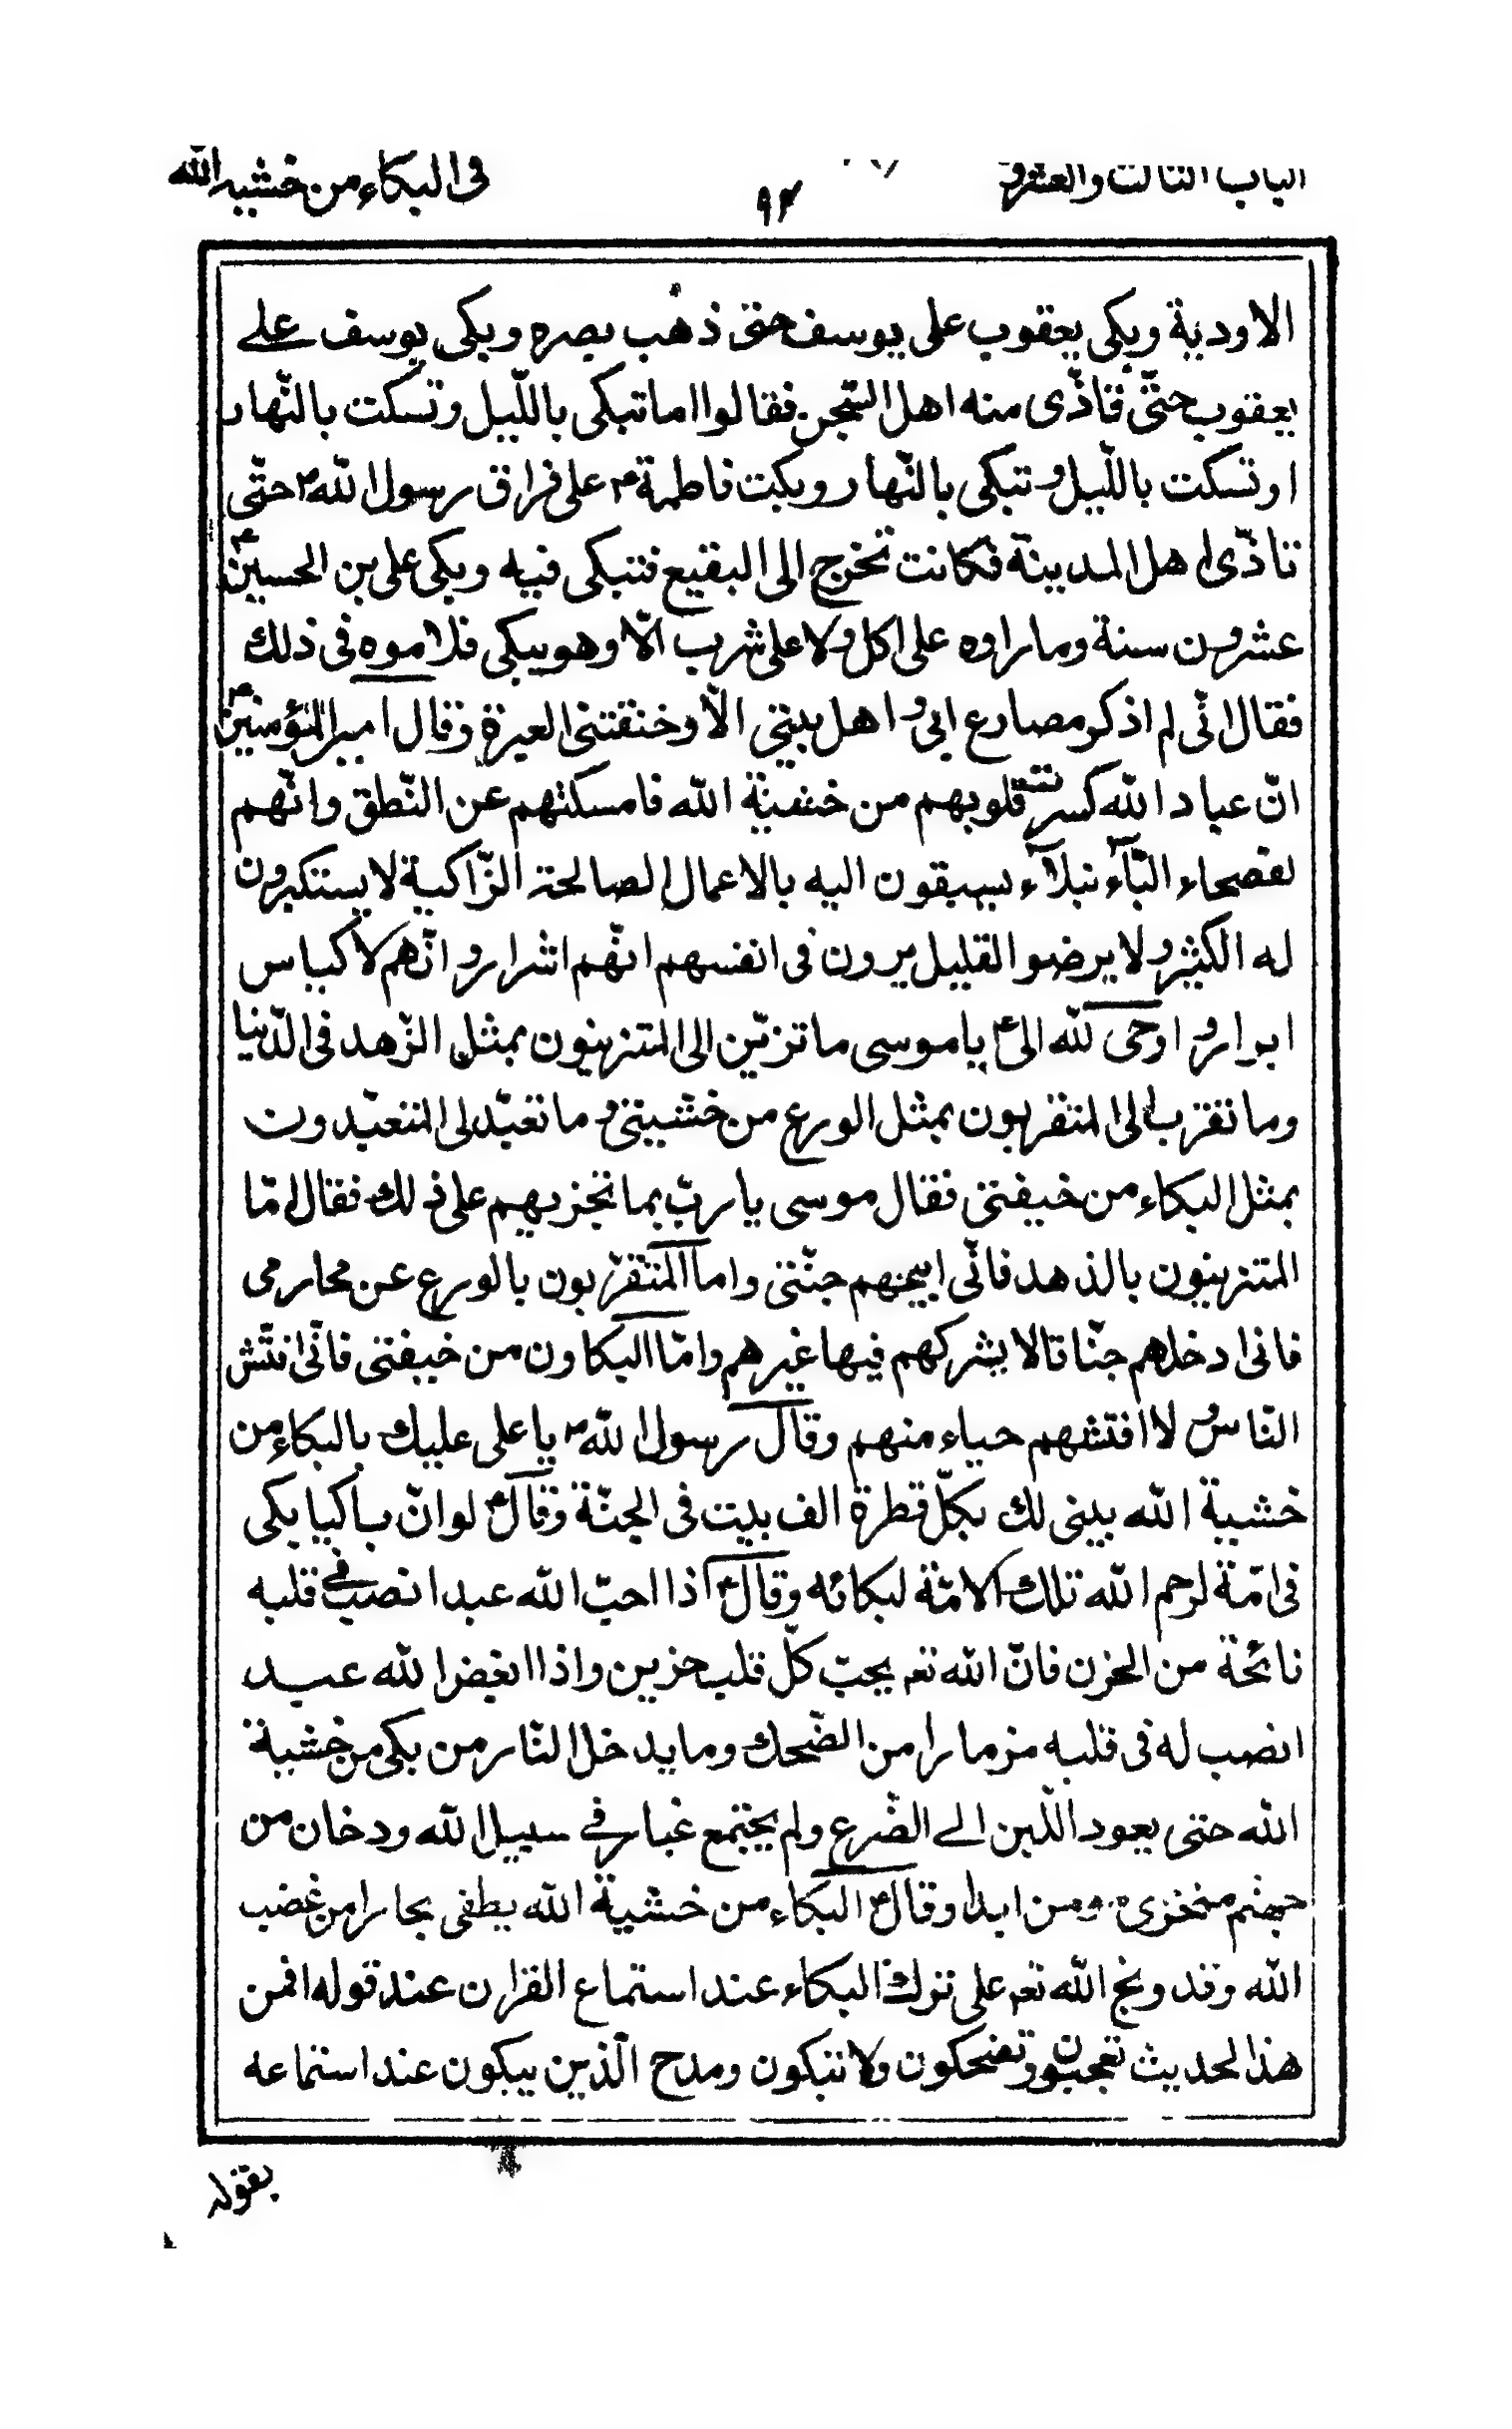 الباب الثالث والعشرون
٩٤
فى البكاء من خشيه الله
الاودية وبكى يعقوب على يوسف حتى ذهب بصره وبكى يوسف على
يعقوب حتّى تاذّى منه اهل السّجن فقالوا اما تبكى باللّيل وتسكت بالنّهار
او تسكت باللّيل و تبكى بالنّهار وبكت فاطمة ع على فراق رسول الله ص حتّى
تاذّى اهل المدينة فكانت تخرج الى البقيع فتبكى فيه وبكى على بن الحسين ع
عشرون سنة وما راوه على اكل ولا على شرب الّا وهو يبكى فلاموه فى ذلك
فقال انّى لم اذكر مصارع ابى و اهل بيتى الّا وخنقتنى العبرة وقال امير المؤمنين ع
انّ عباد الله كسرت قلوبهم من خشية الله فامسكتهم عن النّطق وانّهم
لفصحاء البّآء نبلآء يسبقون اليه بالاعمال الصالحة الزّاكية لا يستكبرون
له الكثير ولا يرضو القليل يرون فى انفسهم انّهم اشرار و انّهم لاكياس
ابرار و اوحى لله الى ع يا موسى ما تزيّن الى المتزينون بمثل الزّهد فى الدّنيا
وما تقرب الى المتقربون بمثل الورع من خشيتى و ما تعبّد لى المتعبّدون
بمثل البكاء من خيفتى فقال موسى يا ربّ بما تجزيهم على ذلك فقال امّا
المتزينون بالذهد فانّى ابيحهم جنّتى واما المتقرّبون بالورع عن محارمى
فانى ادخلهم جنّاتا لا يشركهم فيها غيرهم وامّا البكاون من خيفتى فانّى افتّش
النّاس و لا افتشهم حياء منهم وقال رسول الله ص يا على عليك بالبكاء من
خشية الله يبنى لك بكلّ قطرة الف بيت فى الجنّة وقال ع لو انّ باكيا بكى
فى امّة لرحم الله تلك الامّة لبكائه وقال ع اذا احبّ الله عبدا نصب فى قلبه
نائحة من الحزن فانّ الله تعه يحبّ كلّ قلب حزين واذا ابغض الله عبد
انصب له فى قلبه مزمارا من الضّحك وما يدخل النّار من بكى من خشية
الله حتى يعود اللّبن الى الضّرع ولم يجتمع غبار فى سبيل الله ودخان من
جهنّم منخزى مؤمن ابدا وقال ع البكاء من خشية الله يطفى بحارا من غضب
الله وقد وبخ الله تعه على ترك البكاء عند استماع القران عند قوله افمن
هذا لحديث تعجبون وتضحكون ولا تبكون ومدح الّذين يبكون عند استماعه
بقوله